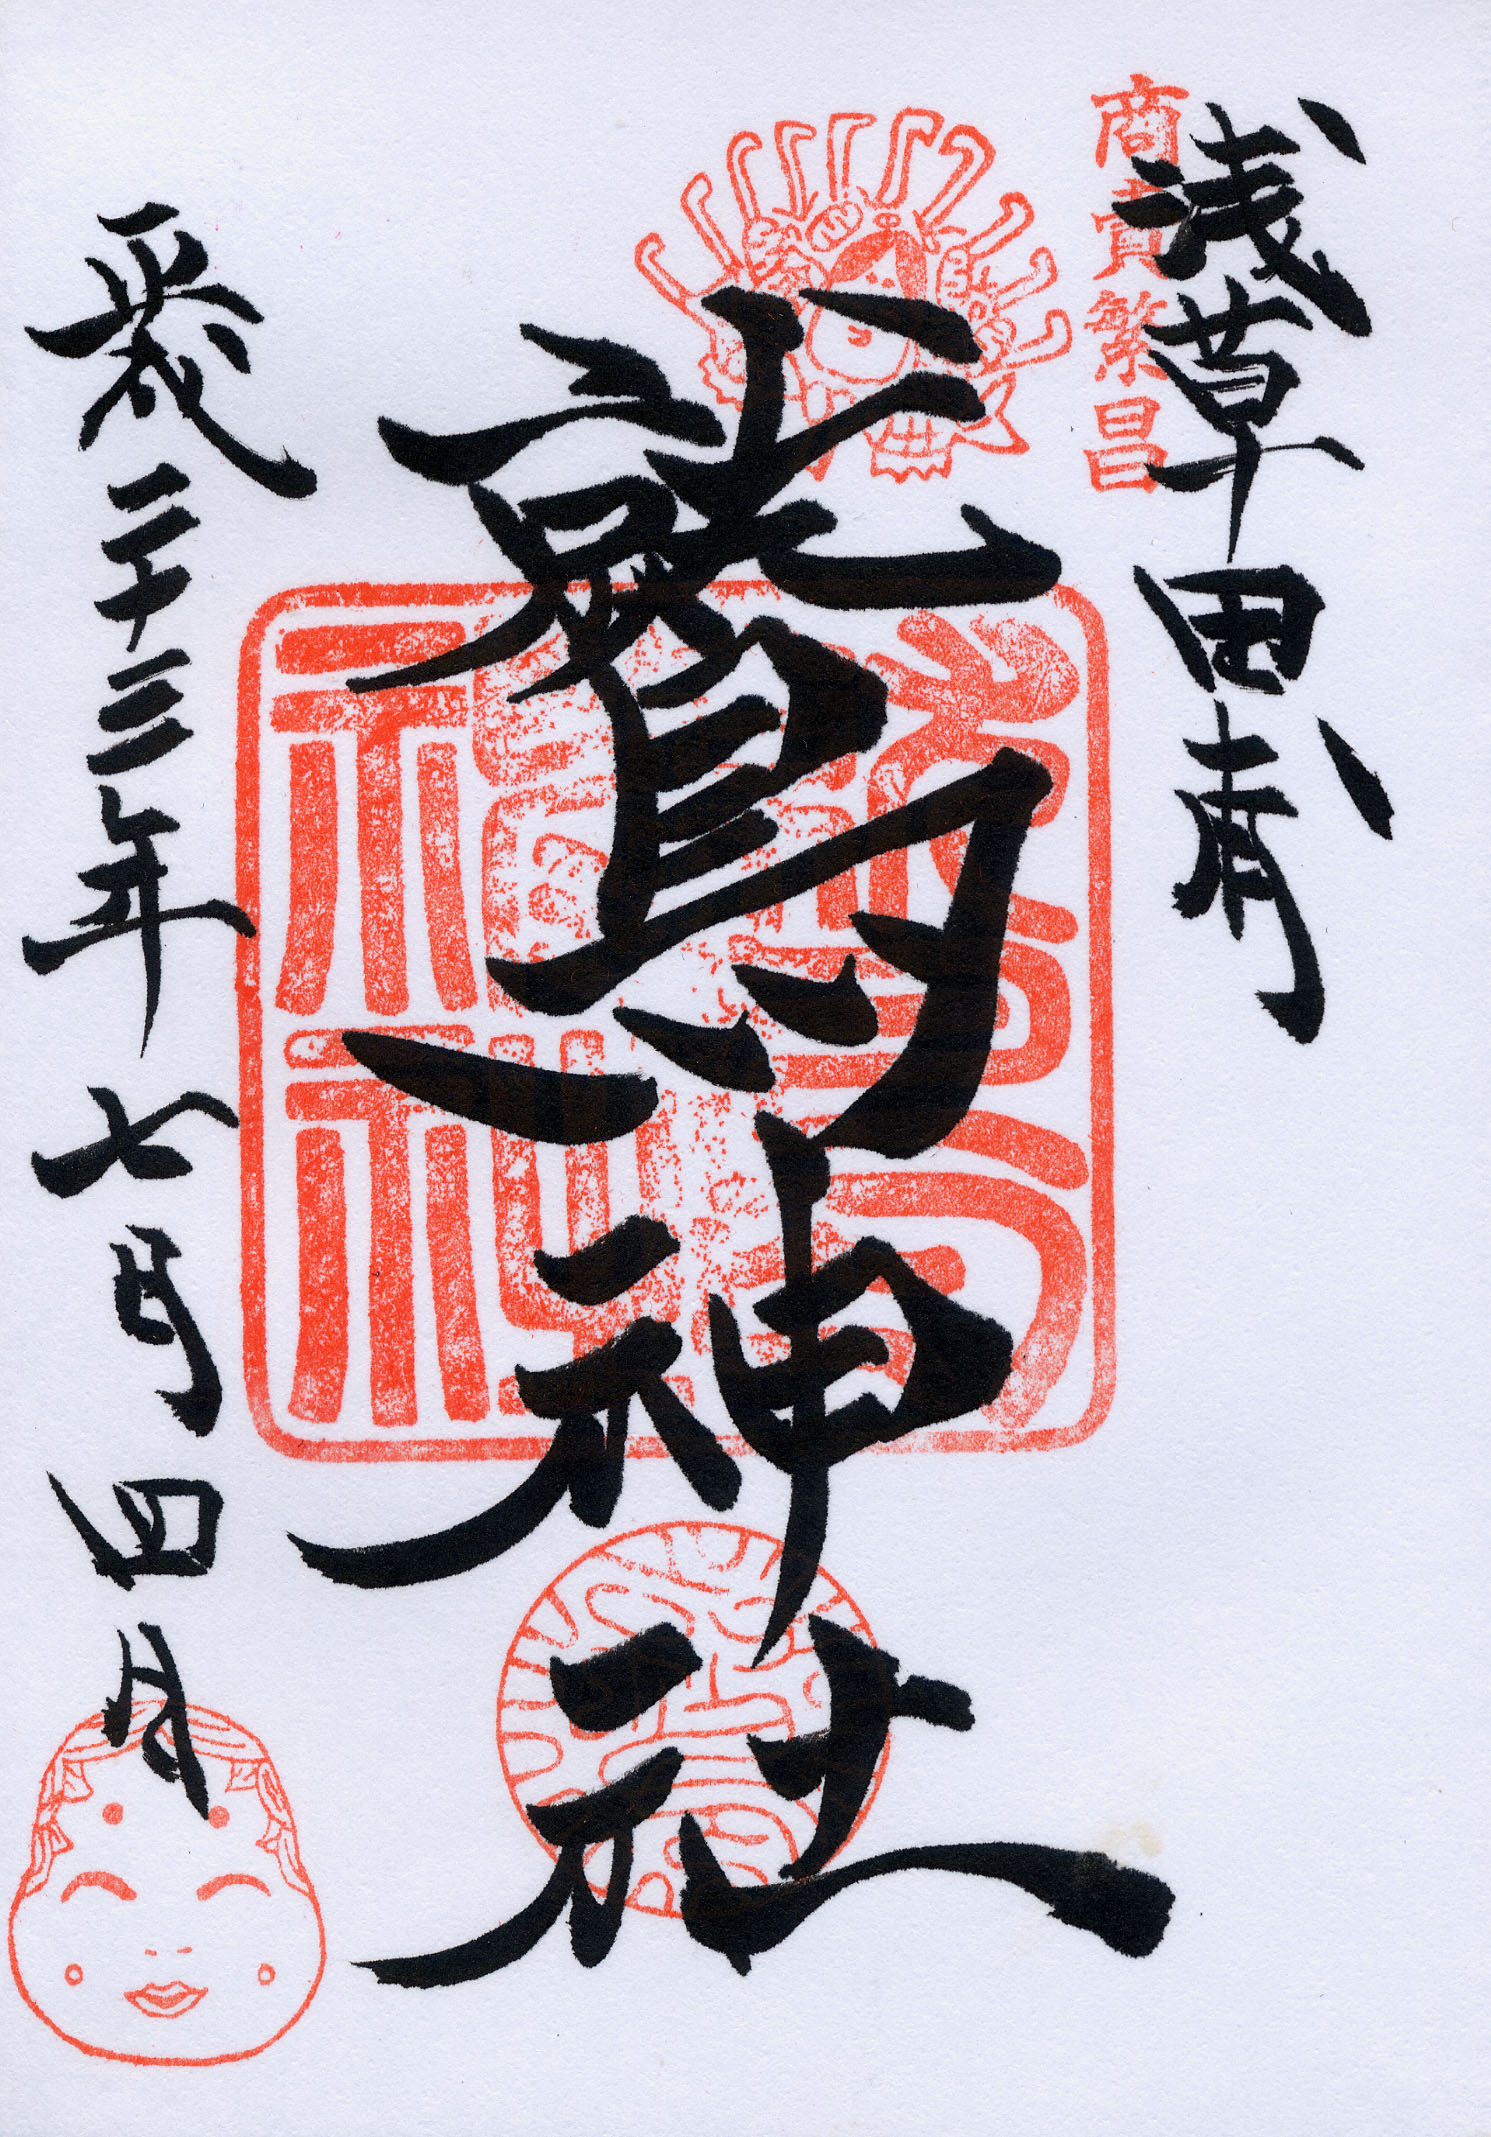 浅草田甫
商賣繁昌
鷲神社
平成二十三年七月四日